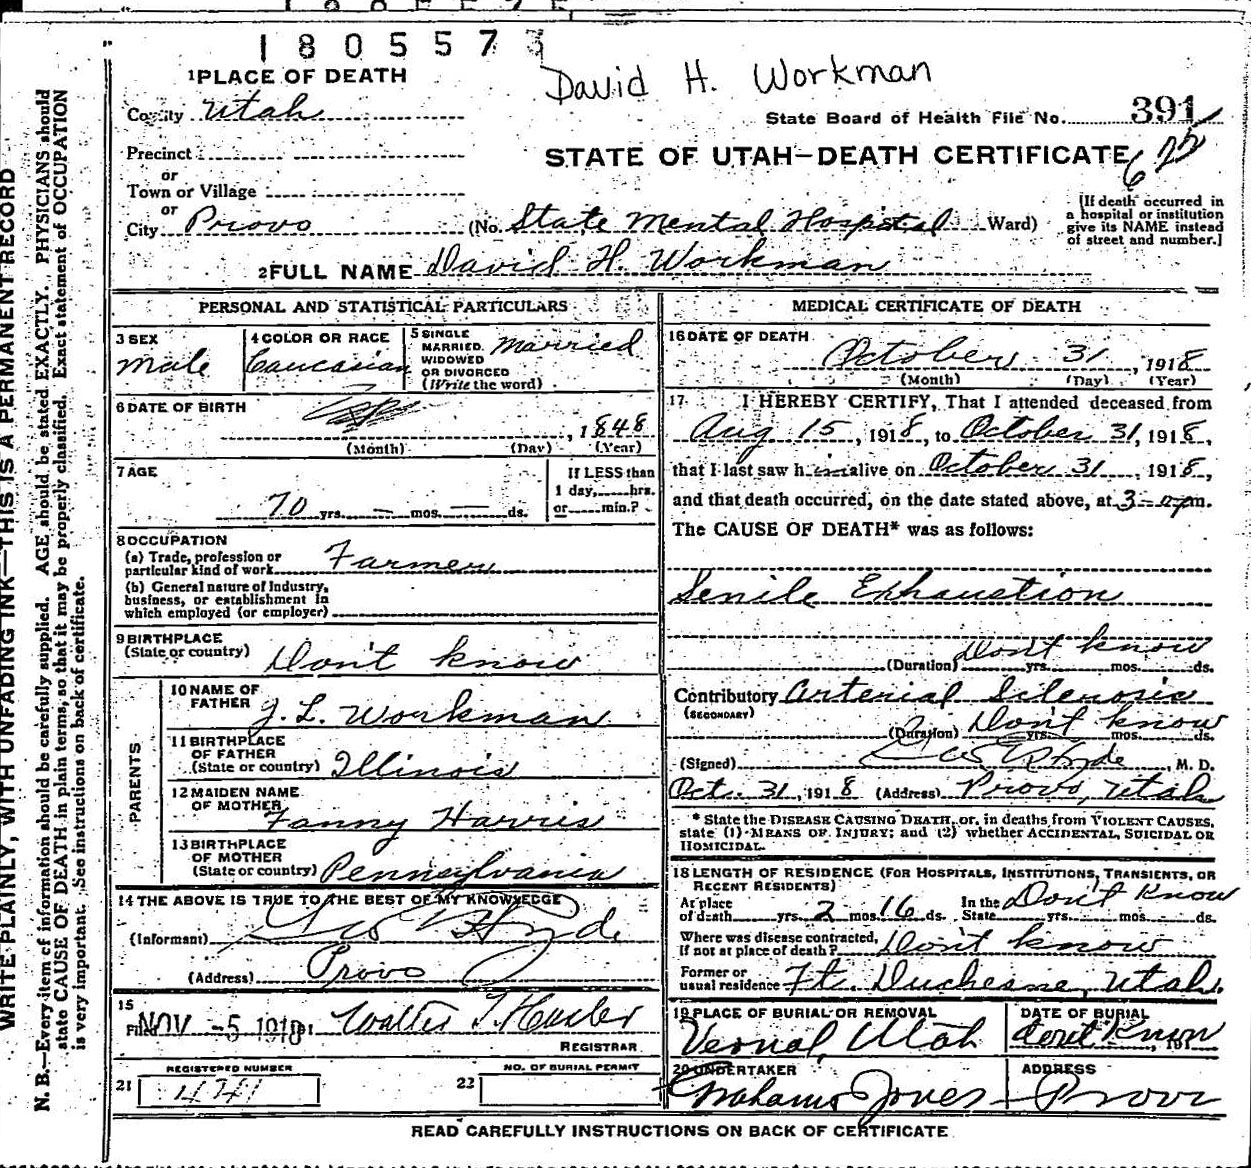 1805573
David H. Workman
1 PLACE OF DEATH
County Utah
State Board of Health File No. 391
Precinct
or
Town or Village
or
STATE OF UTAH—DEATH CERTIFICATE
City Provo (No. State Mental Hospital Ward)
[If death occurred in
a hospital or institution
give its NAME instead
of street and number.]
2 FULL NAME David H. Workman
PERSONAL AND STATISTICAL PARTICULARS
3 SEX
Male
4 COLOR OR RACE
Caucasian
5 SINGLE
MARRIED
WIDOWED
OR DIVORCED
(Write the word)
Married
6 DATE OF BIRTH
, 1848
(Month) (Day) (Year)
7 AGE
70 yrs. — mos. — ds.
If LESS than
1 day, hrs.
or min.?
8 OCCUPATION
(a) Trade, profession or
particular kind of work Farmer
(b) General nature of Industry,
business, or establishment in
which employed (or employer)
9 BIRTHPLACE
(State or country) Don't know
PARENTS
10 NAME OF
FATHER J. L. Workman
11 BIRTHPLACE
OF FATHER
(State or country) Illinois
12 MAIDEN NAME
OF MOTHER Fanny Harris
13 BIRTHPLACE
OF MOTHER
(State or country) Pennsylvania
14 THE ABOVE IS TRUE TO THE BEST OF MY KNOWLEDGE
(Informant) Geo E Hyde
(Address) Provo
15
Filed NOV -5 1918
REGISTRAR
REGISTERED NUMBER
21 4741
NO. OF BURIAL PERMIT
22
MEDICAL CERTIFICATE OF DEATH
16 DATE OF DEATH
October 31, 1918
(Month) (Day) (Year)
17 I HEREBY CERTIFY, That I attended deceased from
Aug 15, 1918, to October 31, 1918,
that I last saw him alive on October 31, 1918,
and that death occurred, on the date stated above, at 3 m.
The CAUSE OF DEATH* was as follows:
Senile Exhaustion
(Duration) Don't know yrs. mos. ds.
Contributory Arterial Sclerosis
(SECONDARY)
(Duration) Don't know yrs. mos. ds.
(Signed) Geo E Hyde, M. D.
Oct. 31, 1918 (Address) Provo, Utah
* State the DISEASE CAUSING DEATH, or, in deaths from VIOLENT CAUSES,
state (1) MEANS OF INJURY; and (2) whether ACCIDENTAL, SUICIDAL OR
HOMICIDAL.
18 LENGTH OF RESIDENCE (FOR HOSPITALS, INSTITUTIONS, TRANSIENTS, OR
RECENT RESIDENTS)
At place
of death yrs. 2 mos. 16 ds. In the
State Don't know yrs. mos. ds.
Where was disease contracted,
if not at place of death? Don't know
Former or
usual residence Ft. Duchesne, Utah.
19 PLACE OF BURIAL OR REMOVAL
Vernal, Utah
DATE OF BURIAL
dont Know, 191
20 UNDERTAKER
Jones
ADDRESS
Provo
READ CAREFULLY INSTRUCTIONS ON BACK OF CERTIFICATE
WRITE PLAINLY, WITH UNFADING INK—THIS IS A PERMANENT RECORD
N. B.—Every item of information should be carefully supplied. AGE should be stated EXACTLY. PHYSICIANS should
state CAUSE OF DEATH in plain terms, so that it may be properly classified. Exact statement of OCCUPATION
is very important. See instructions on back of certificate.